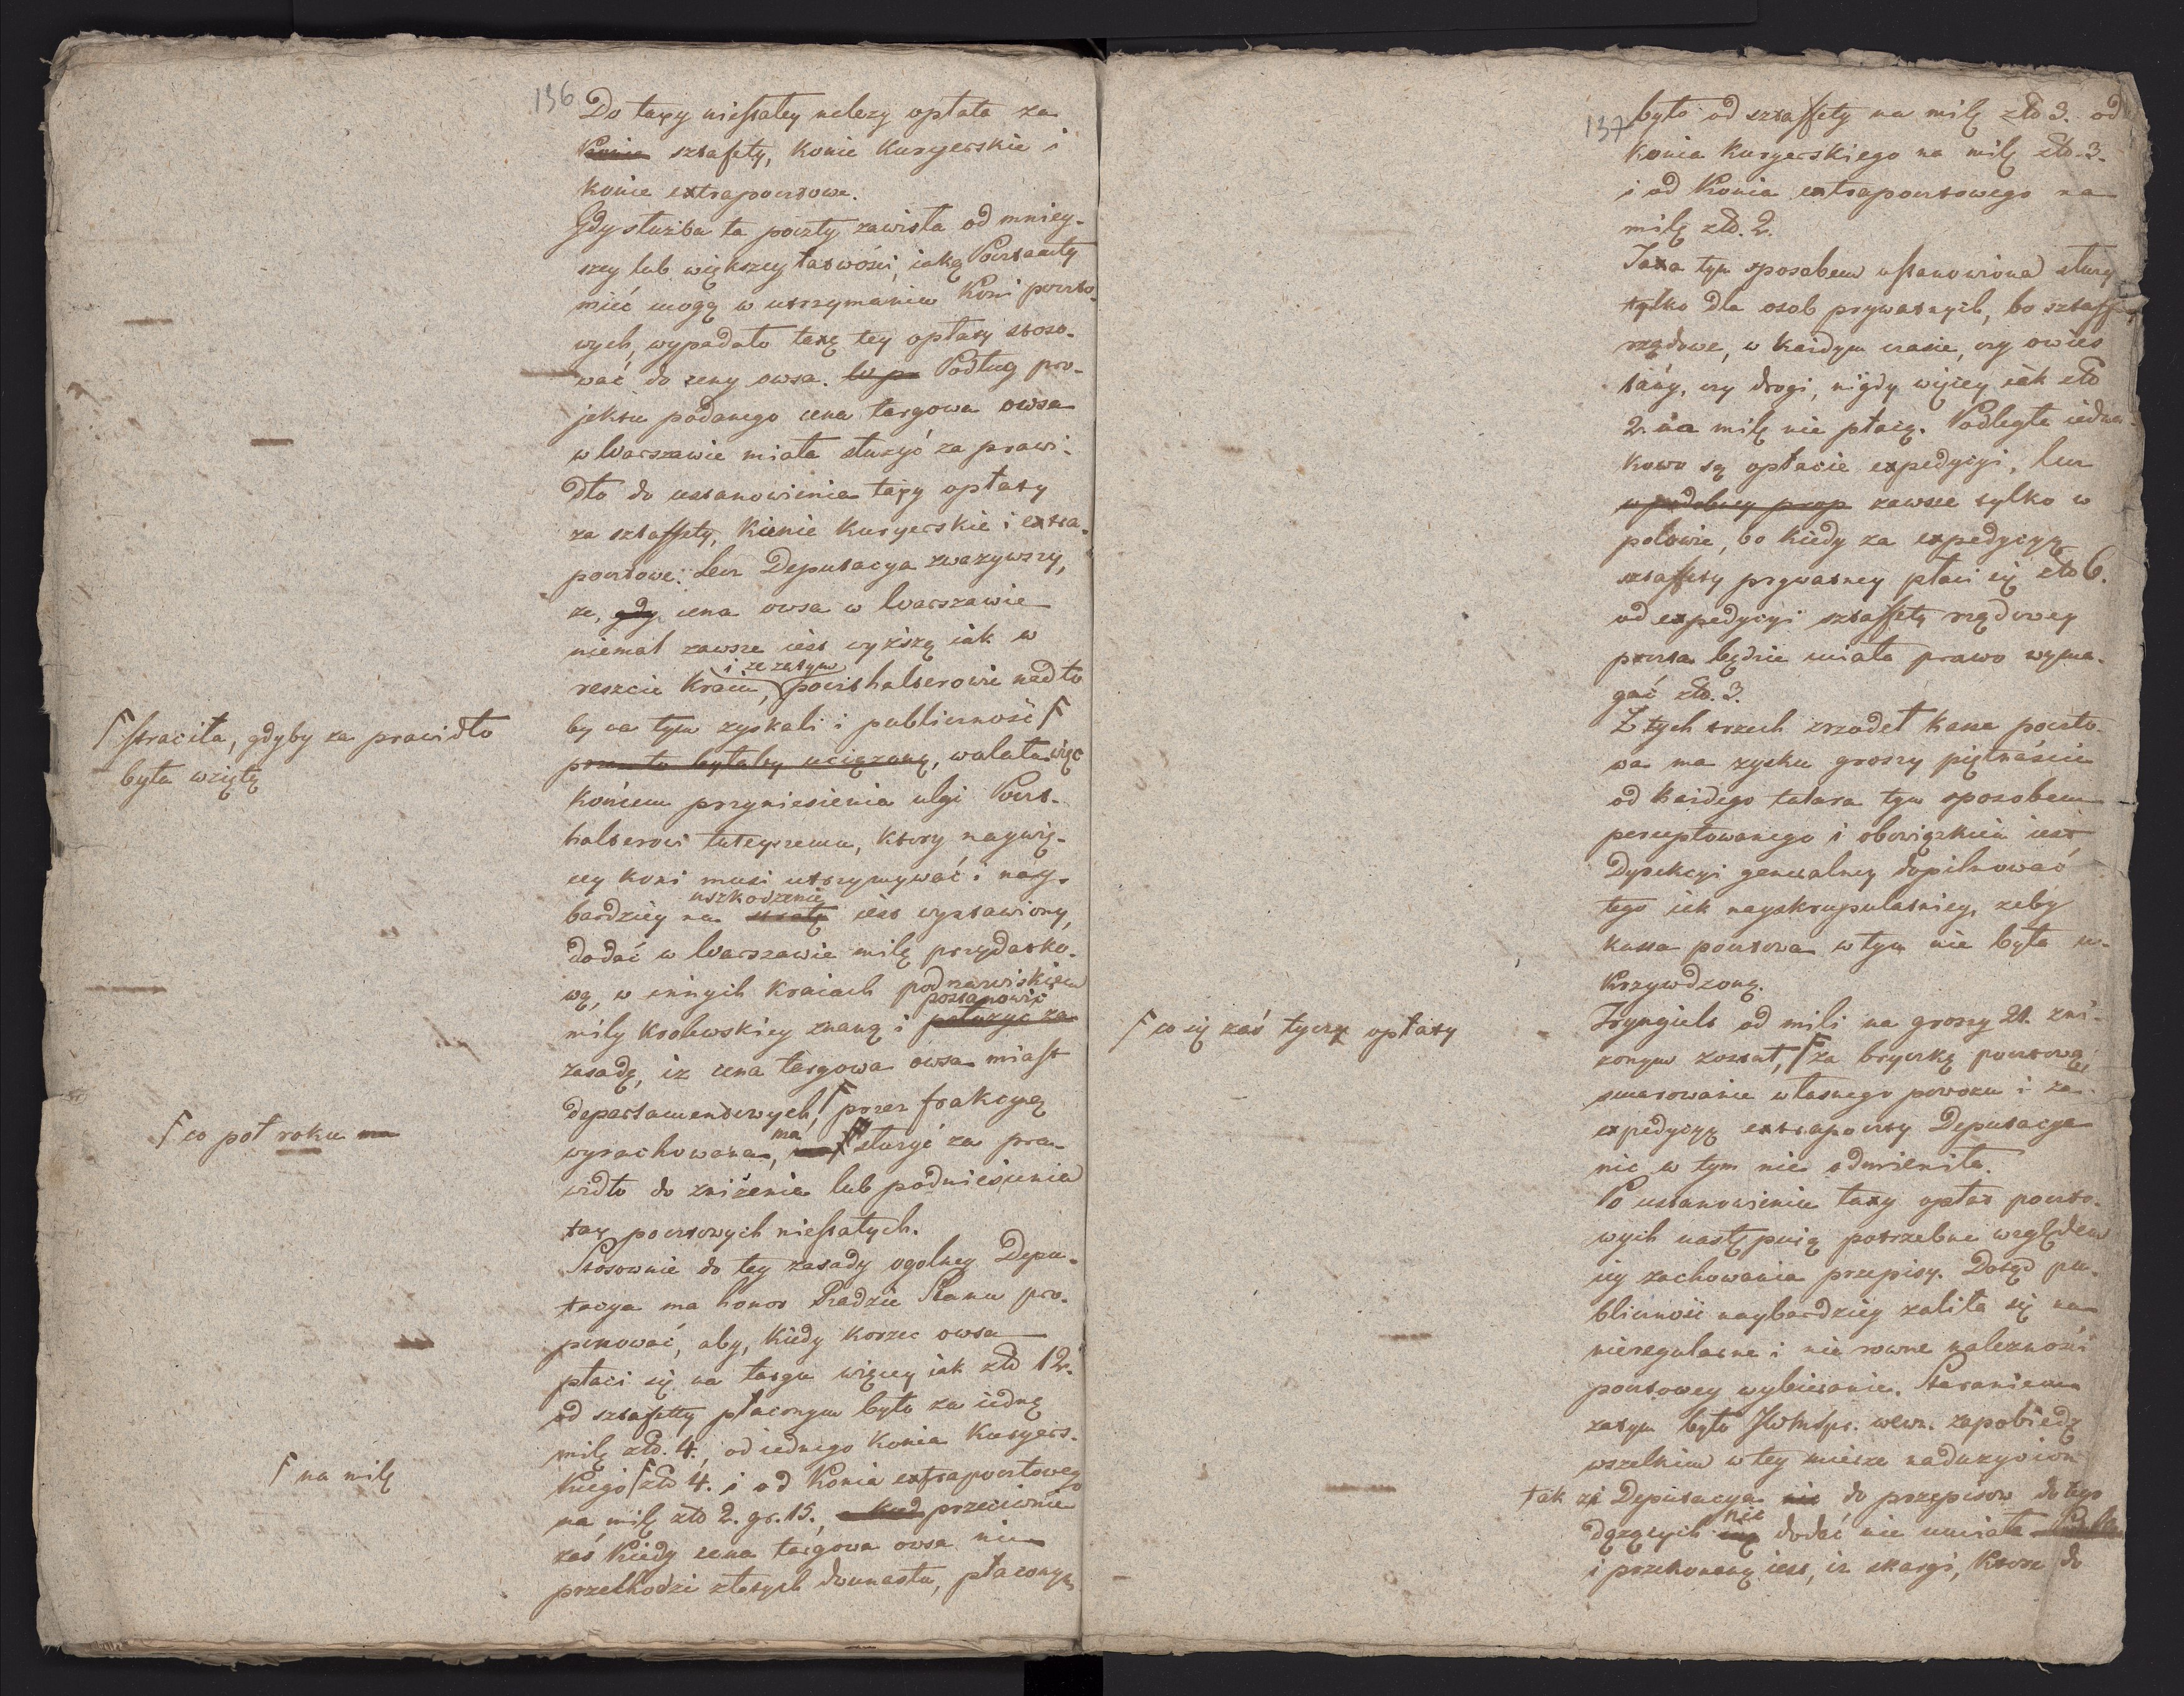 136
Do taxy niestałey należy opłata za
Konie sztafety, konie Kuryerskie i
konie extrapocztowe.
Gdy służba ta poczty zawisła od mniey-
szey lub większey łatwości, iaką Pocztamty
mieć mogą w utrzymaniu Koni poczto-
wych, wypadało taxę tey opłaty stoso-
wać do ceny owsa. W pr Podług pro-
jektu podanego cena targowa owsa
w Warszawie miała służyć za prawi-
dło do ustanowienia taxy opłaty
za sztaffety, Konie Kuryerskie i extra-
pocztowe. Lecz Deputacya zważywszy,
że, gdy cena owsa w Warszawie
niemal zawsze iest wyższą iak w
i że zatym
reszcie Kraiu, pocrthalterowie nadto
by na tym zyskali i publiczność
przez to byłaby uciążoną, wolała więc
Γ straciła, gdyby za prawidło
była wziętą
końcem przyniesienia ulgi Poczt-
halterowi tuteyszemu, ktory naywię-
cey koni musi utrzymywać i nay-
uszkodzenie
bardziey na stratę iest wystawiony,
dodać w Warszawie milę przydatko-
wą, w innych Kraiach pod nazwiskiem
postanowić
mily Krolewskiey znaną i położyć za
zasadę, iż cena targowa owsa miast
departamentowych, Γ przez frakcyą
Γ co poł roku ma
ma
wyrachowana, ma służyć za pra-
widło do zniżenia lub podniesienia
tax pocztowych niestałych.
Stosownie do tey zasady ogolney Depu-
tacya ma honor Radzie Stanu pro-
ponować, aby, kiedy korzec owsa
płaci się na targu więcey iak złt 12.
od sztafetty płaconym było za iedną
milę złt. 4., od iednego Konia Kuryers-
kiego Γ złt 4. i od Konia extrapocztowego
Γ na milę
na milę złt 2. gr. 15., a kied przeciwnie
zaś kiedy cena targowa owsa nie
przechodzi złotych dwunastu, płaconym
137
było od sztaffety na milę złt 3. od
Konia Kuryerskiego na milę złt. 3.
i od Konia extrapocztowego na
milę złt. 2.
Taxa tym sposobem ustanowiona służy
tylko dla osob prywatnych, bo sztaffety
rządowe, w każdym czasie, czy owies
tani, czy drogi, nigdy więcey iak złt
2. na milę nie płacą. Podległe iedna-
kowo są opłacie expedycyi, lecz
w podobney prop zawsze tylko w
połowie, bo kiedy za expedycyą
sztaffety prywatney płaci się złt 6.
od expedycyi sztaffety rządowey
poczta będzie miała prawo wyma-
gać złt. 3.
Z tych trzech zrzodeł kassa poczto-
wa ma zysku groszy piętnaście
od każdego talara tym sposobem
perceptowanego i obowiązkiem iest
Dyrekcyi generalney dopilnować
tego iak nayskrupulatniey, żeby
kassa pocztowa w tym nie była u-
krzywdzoną.
Tryngielt od mili na groszy 21. zni-
żonym został, Γ za bryczkę pocztową,
Γ co się zaś tycze opłaty
smarowanie własnego powozu i za
expedycyą extrapoczty Deputacya
nic w tym nie odmieniła.
Po ustanowieniu taxy opłat poczto-
wych następuią potrzebne względem
iey zachowania przepisy. Dotąd pu-
bliczność naybardziey żaliła się na
nieregularne i nie rowne należności
pocztowey wybieranie. Staraniem
zatym było JWMstr. wewn. zapobiedz
wszelkim w tey mierze nadużyciom
tak iż Deputacya nic do przepisow do tego
nic
dążących się dodać nie umiała
i przekonaną iest, iż skargi, ktore do